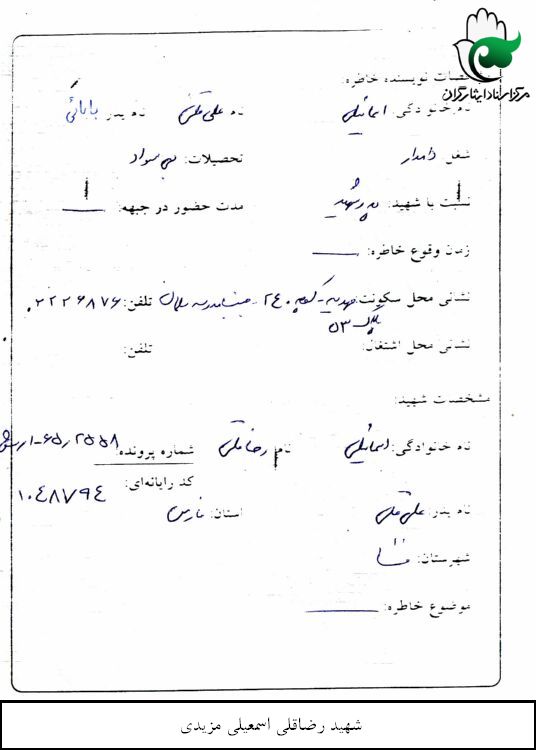 مرکز اسناد ایثارگران
مشخصات نویسنده خاطره:
نام خانوادگی: اسماعیلی نام علی قلی نام پدر بابائی
شغل دامدار تحصیلات: بی سواد
نسبت با شهید: پدر شهید مدت حضور در جبهه:
زمان وقوع خاطره:
نشانی محل سکونت: مهدیه - کوچه ۲۴۰ - جنب مدرسه تلفن: ۲۲۲۶۸۷۶
پلاک ۵۳
نشانی محل اشتغال: تلفن:
مشخصات شهید:
نام خانوادگی: اسماعیلی نام رضا قلی شماره پرونده
کد رایانه‌ای: ۱۰۴۸۷۹۴
نام پدر: علی قلی استان: فارس
شهرستان: فسا
موضوع خاطره:
شهید رضاقلی اسمعیلی مزیدی